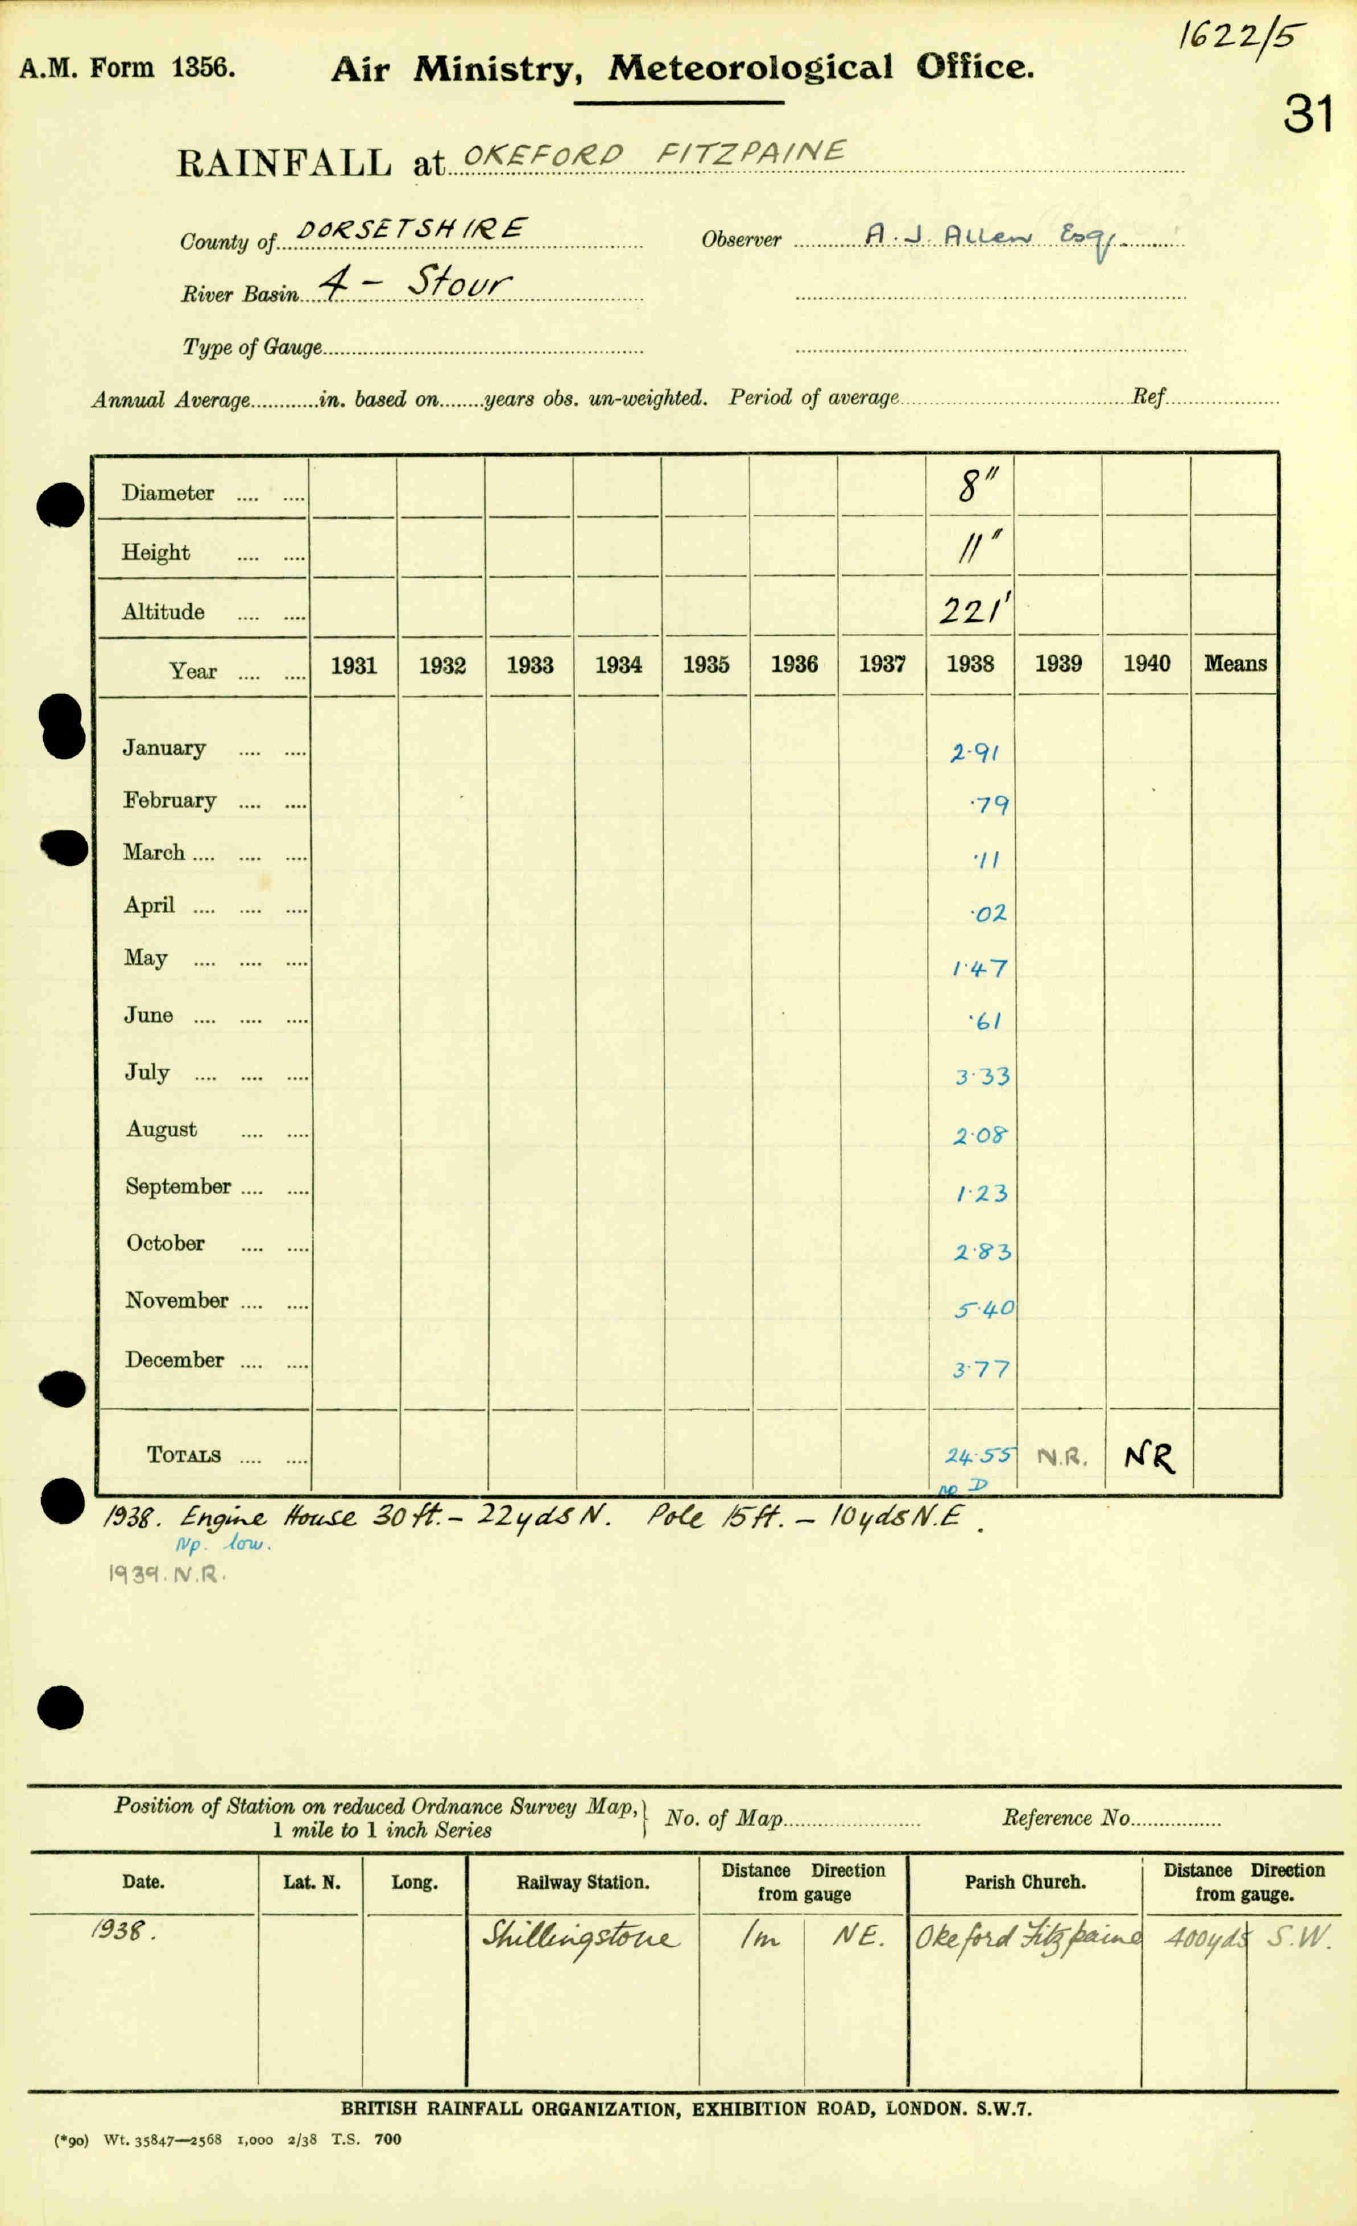 1622/5
A.M. Form 1356. Air Ministry, Meteorological Office.
31
RAINFALL at OKEFORD FITZPAINE
County of DORSETSHIRE Observer A. J. Allen Esq.
River Basin 4 - Stour
Type of Gauge
Annual Average in. based on years obs. un-weighted. Period of average Ref.
Diameter 8"
Height 11"
Altitude 221'
Year 1931 1932 1933 1934 1935 1936 1937 1938 1939 1940 Means
January 2.91
February .79
March .11
April .02
May 1.47
June .61
July 3.33
August 2.08
September 1.23
October 2.83
November 5.40
December 3.77
TOTALS 24.55 N.R. NR
no D
1938. Engine House 30 ft. - 22 yds N. Pole 15 ft. - 10 yds N.E.
Np. low.
1939. N.R.
Position of Station on reduced Ordnance Survey Map, } No. of Map Reference No.
1 mile to 1 inch Series
Date. Lat. N. Long. Railway Station. Distance Direction from gauge Parish Church. Distance Direction from gauge.
1938. Shillingstone 1m NE. Okeford Fitzpaine 400yds S.W.
BRITISH RAINFALL ORGANIZATION, EXHIBITION ROAD, LONDON. S.W.7.
(*90) Wt. 35847—2568 1,000 2/38 T.S. 700